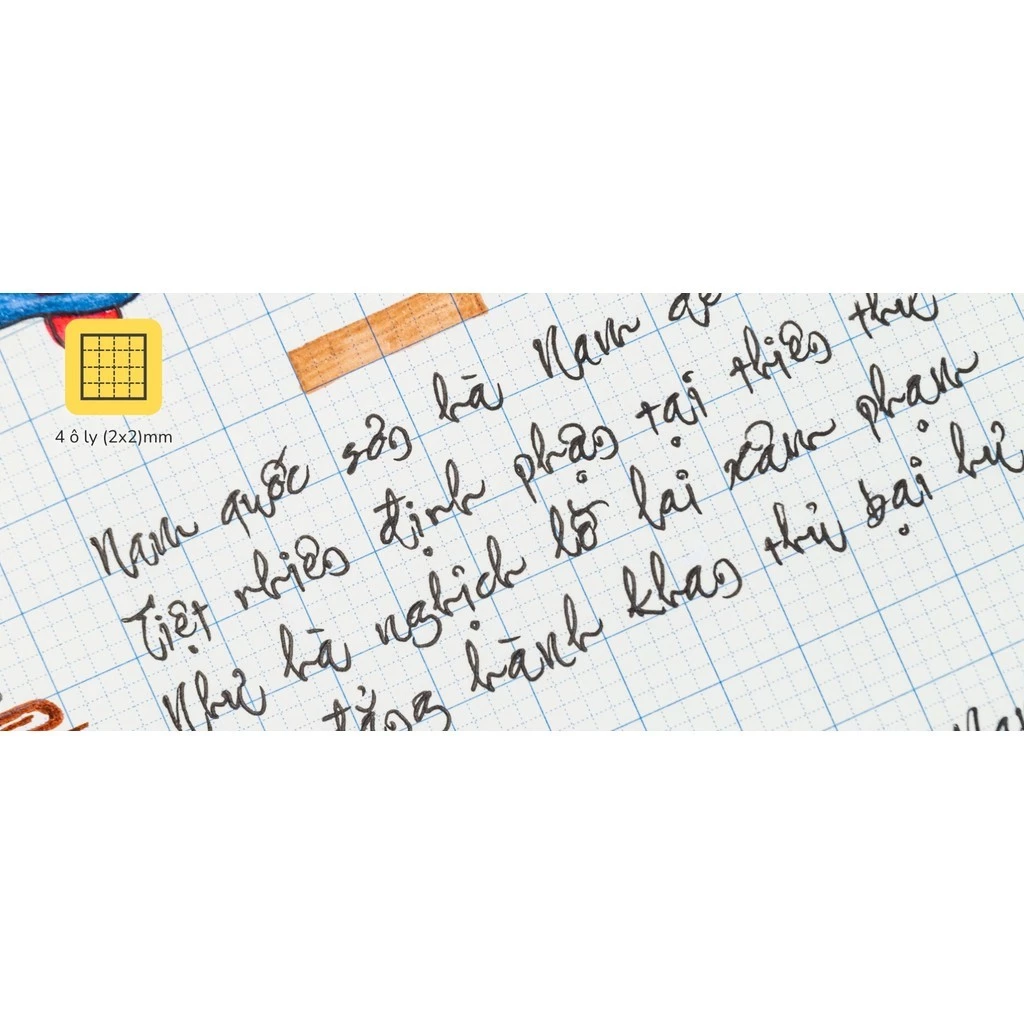 4 ô ly (2x2)mm
Nam quốc sơn hà Nam
Tiệt nhiên định phận tại thiên thư
Như hà nghịch lỗ lai xâm phạm
đẳng hành khan thủ bại hư